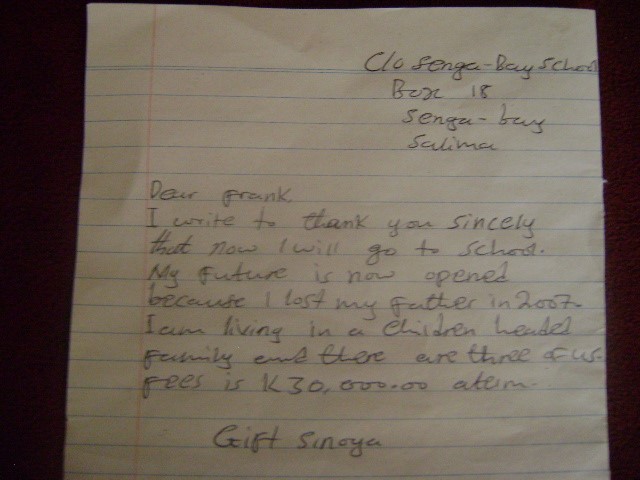 C/o Senga-Bay School
Box 18
Senga-bay
Salima
Dear Frank,
I write to thank you sincely
that now I will go to school.
My future is now opened
because I lost my father in 2007.
I am living in a children headed
family and there are three of us.
Fees is K30,000.00 a term.
Gift Sinoya